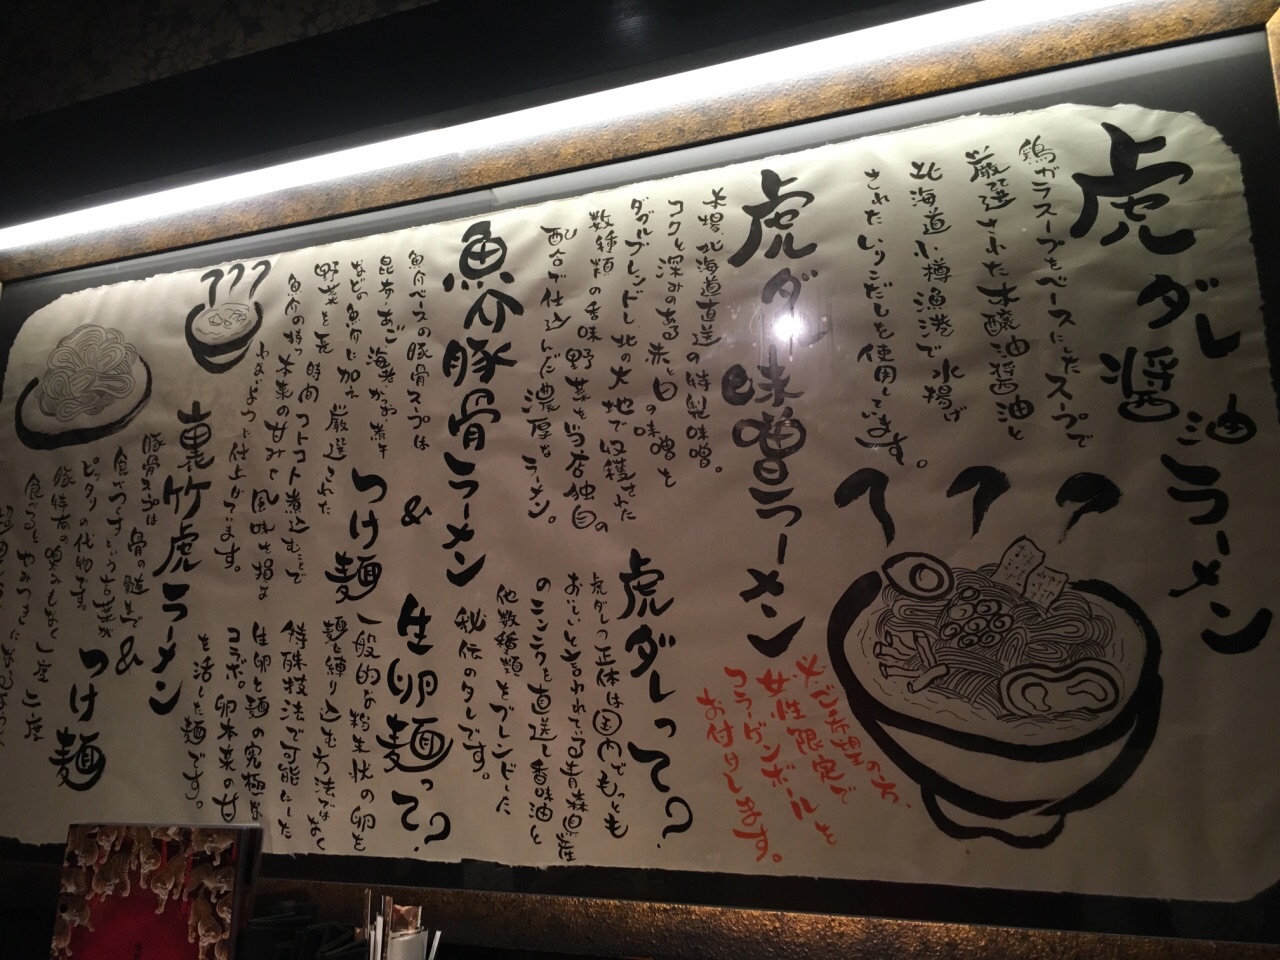 虎ダレ醤油ラーメン
鶏ガラスープをベースにしたスープで
厳選された本醸造醤油と
北海道小樽漁港で水揚げ
されたいりこだしを使用しています。
虎ダレ味噌ラーメン
本場、北海道直送の特製味噌。
コクと深みのある赤と白の味噌を
ダブルブレンドし、北の大地で収穫された
数種類の香味野菜を当店独自の
配合で仕込んだ濃厚なラーメン。
※ご希望の方、
女性限定で
コラーゲンボールを
お付けします。
虎ダレって?
虎ダレの正体は国内でもっとも
おいしいと言われている青森県産
のニンニクを直送し香味油と
他数種類をブレンドした
秘伝のタレです。
魚介豚骨ラーメン
&
つけ麺
魚介ベースの豚骨スープは
昆布・あご・海老・かつお・煮干
などの魚介に加え 厳選された
野菜を長時間コトコト煮込むことで
魚介の持つ本来の甘みや風味を損な
わないように仕上げています。
生卵麺って?
一般的な粉末状の卵を
麺に練り込む方法ではなく
特殊技法で可能にした
生卵と麺の究極な
コラボ。卵本来の甘
を活した麺です。
裏竹虎ラーメン
&
つけ麺
豚骨スープは 骨の髄まで
食べつくすという言葉が
ピッタリの代物です。
豚特有の臭みもなく
食べるとやみつきに
一度二度